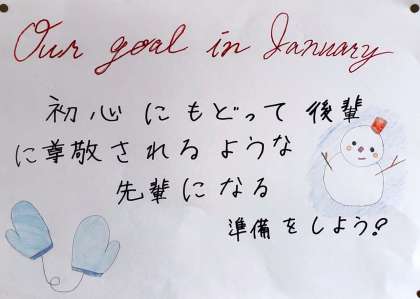 Our goal in January
初心にもどって後輩
に尊敬されるような
先輩になる
準備をしよう?